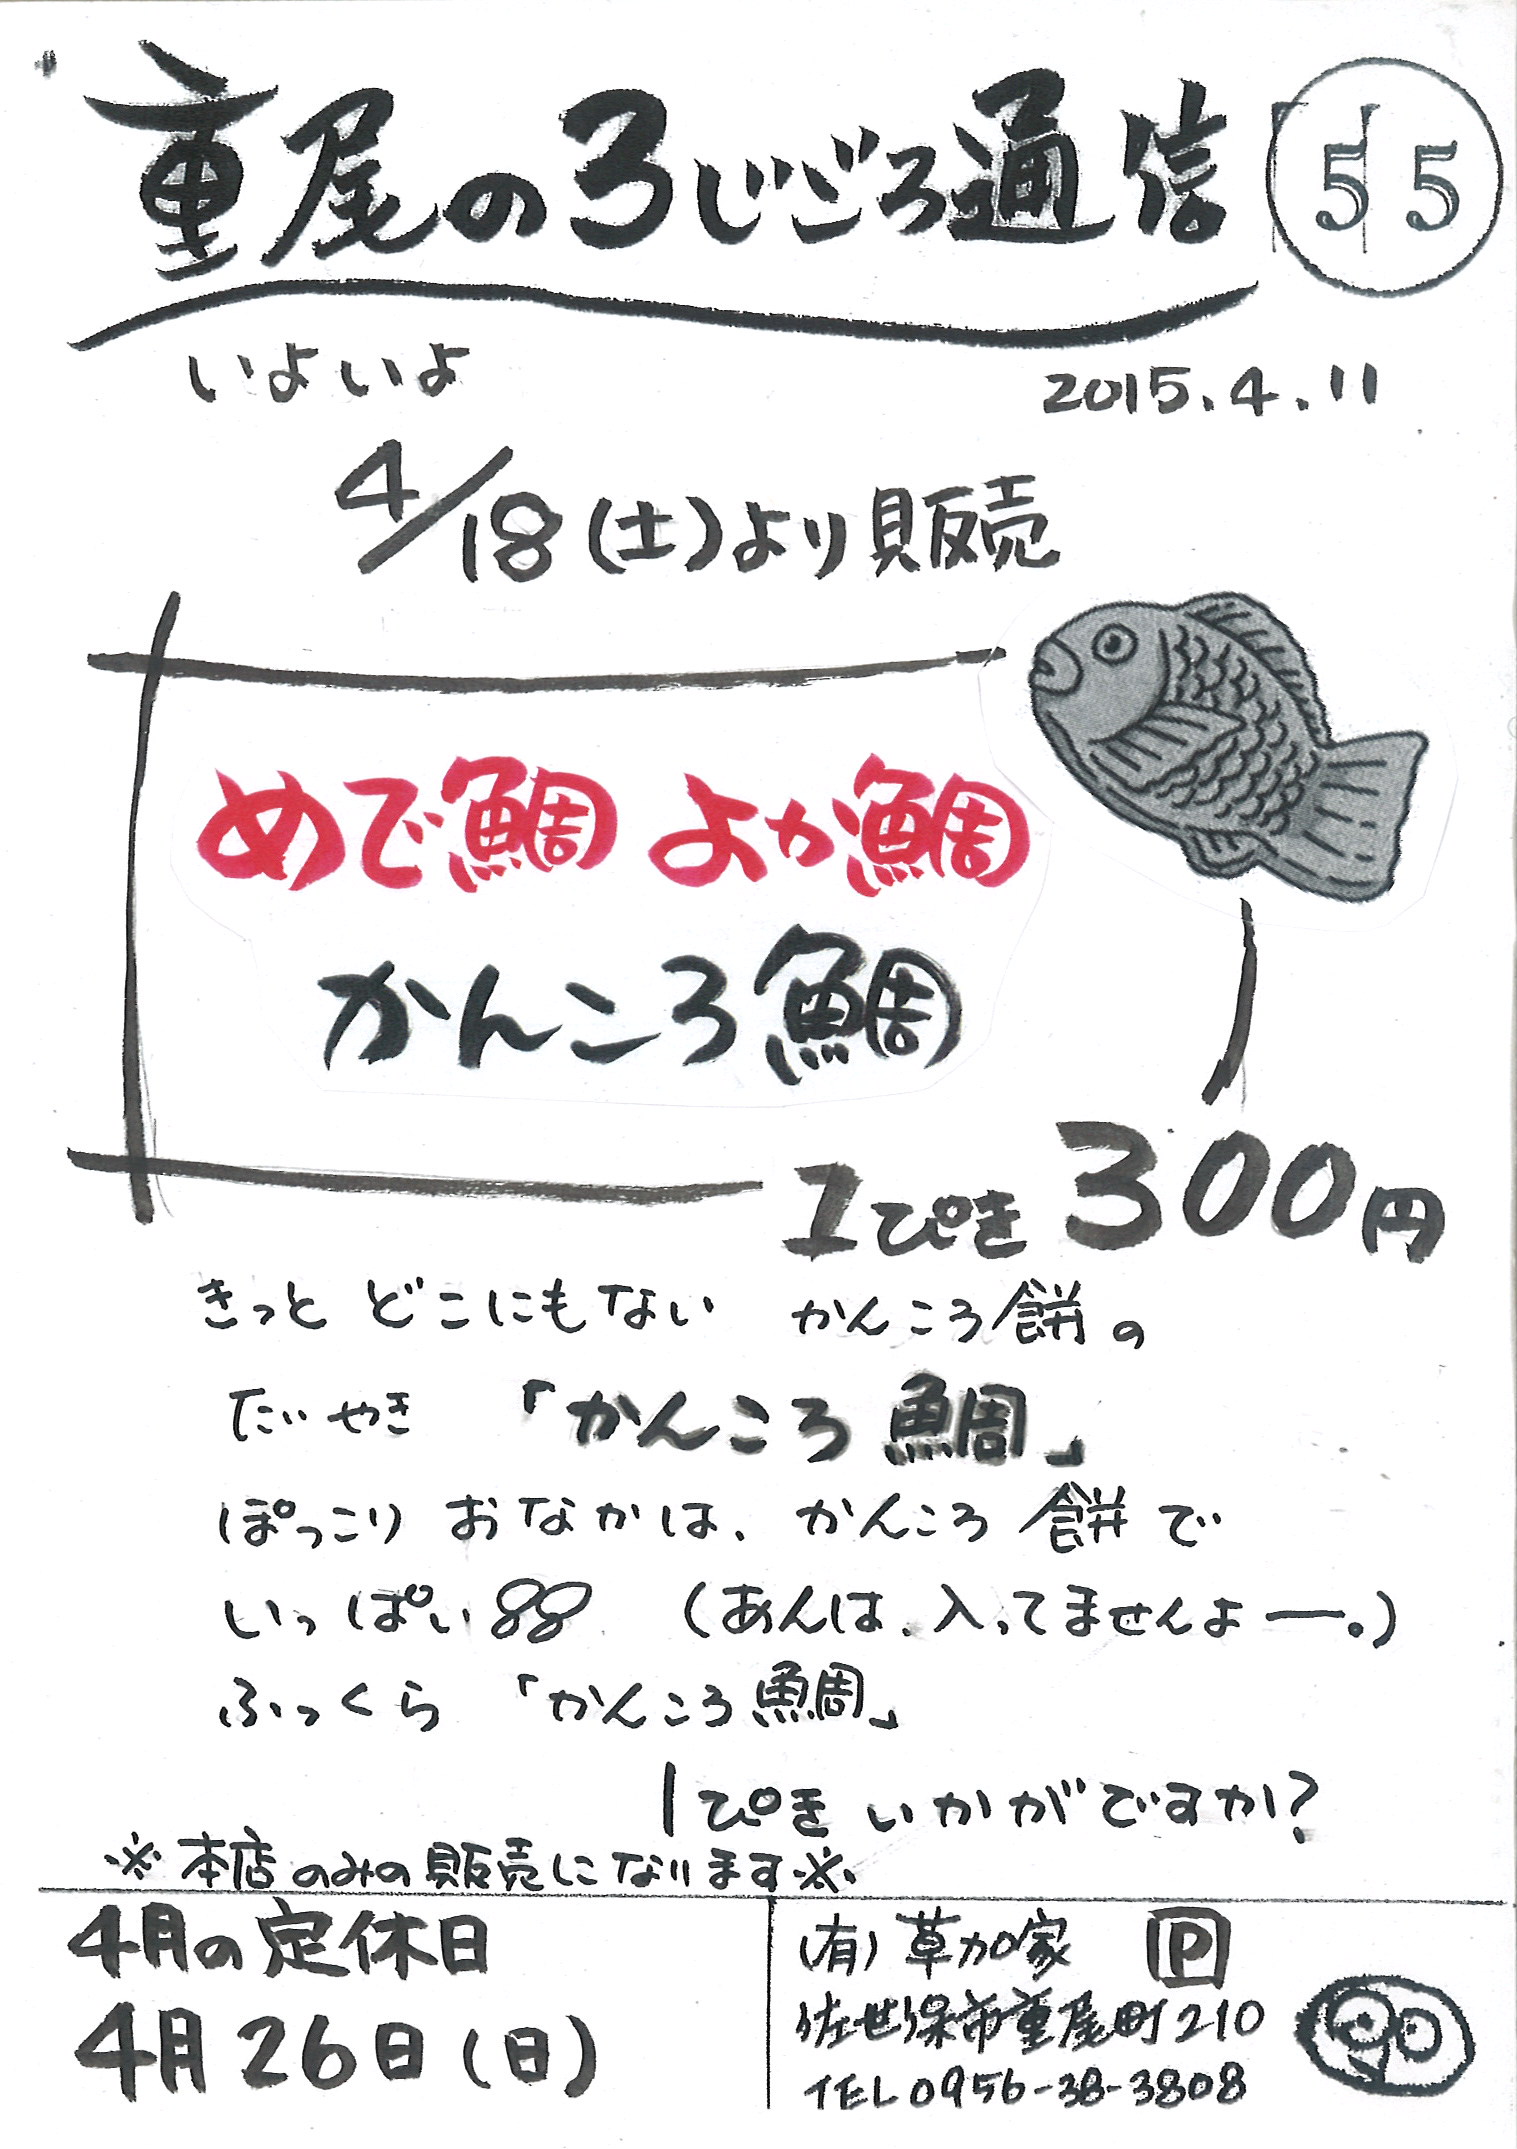 重尾のろじごろ通信 55
いよいよ
2015.4.11
4/18(土)より販売
めで鯛 よか鯛
かんころ鯛
1ぴき300円
きっと どこにもない かんころ餅の
たいやき 「かんころ鯛」
ぽっこり おなかは、かんころ餅で
いっぱい88 (あんは、入ってませんよー。)
ふっくら 「かんころ鯛」
1ぴき いかがですか?
※本店のみの販売になります※
4月の定休日
4月26日(日)
(有)草加家 P
佐世保市重尾町210
TEL0956-38-3808